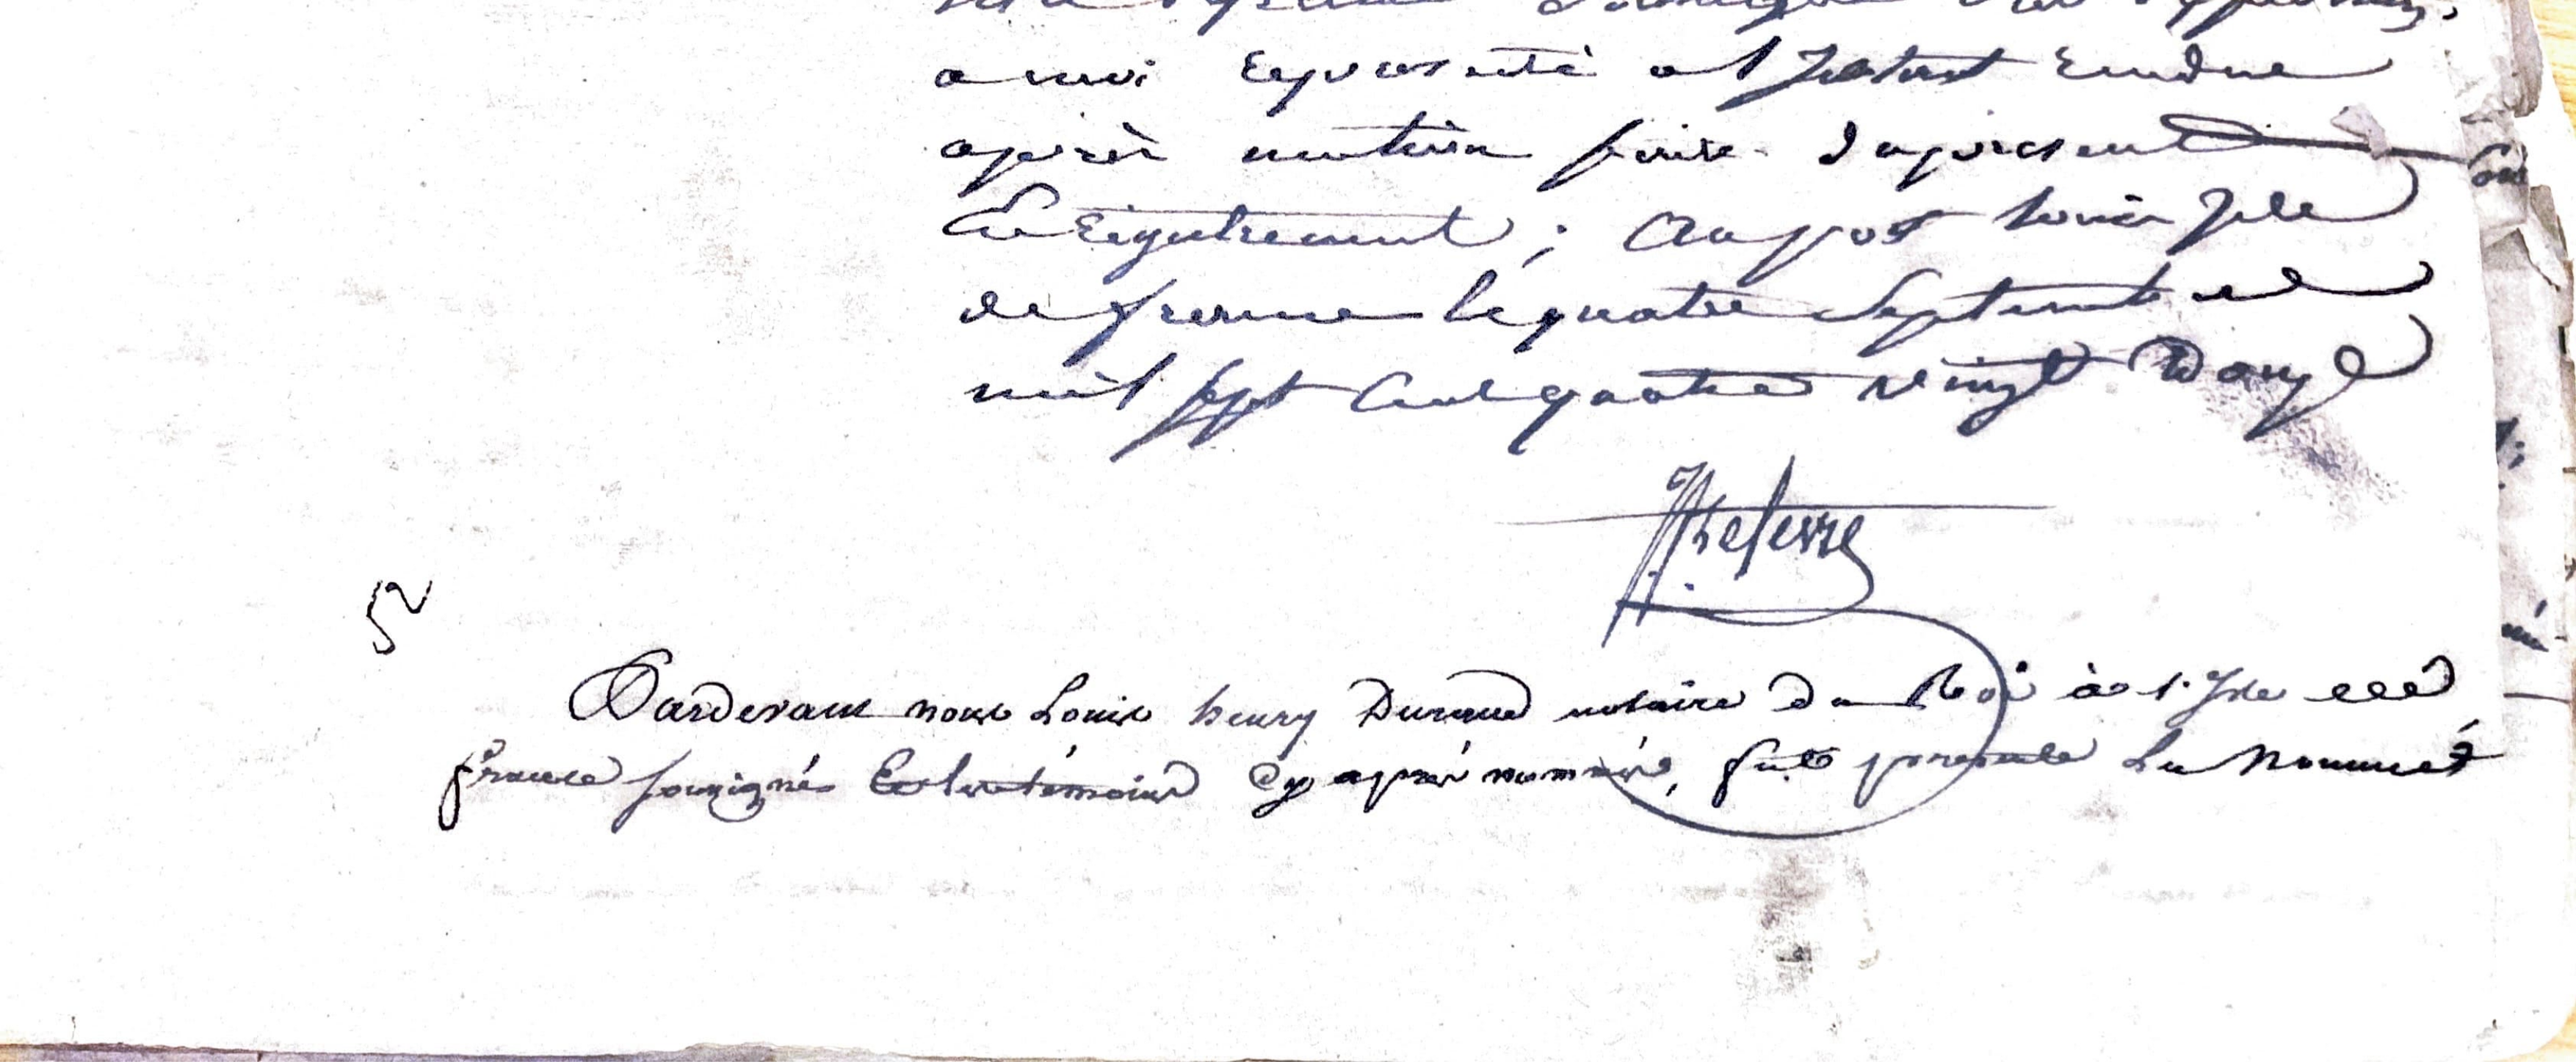 a moi representé et Jnstant rendue
après mention faite du present
Enrigistrement ; au port Louis Jsle
de france le quatre Septembre
mil sept Cent quatre vingt Douze
52
Pardevant nous Louis henry notaire du Roi à l'Jsle de
france soussigné Et les témoins Cy après nommés, fut présente La Nommée